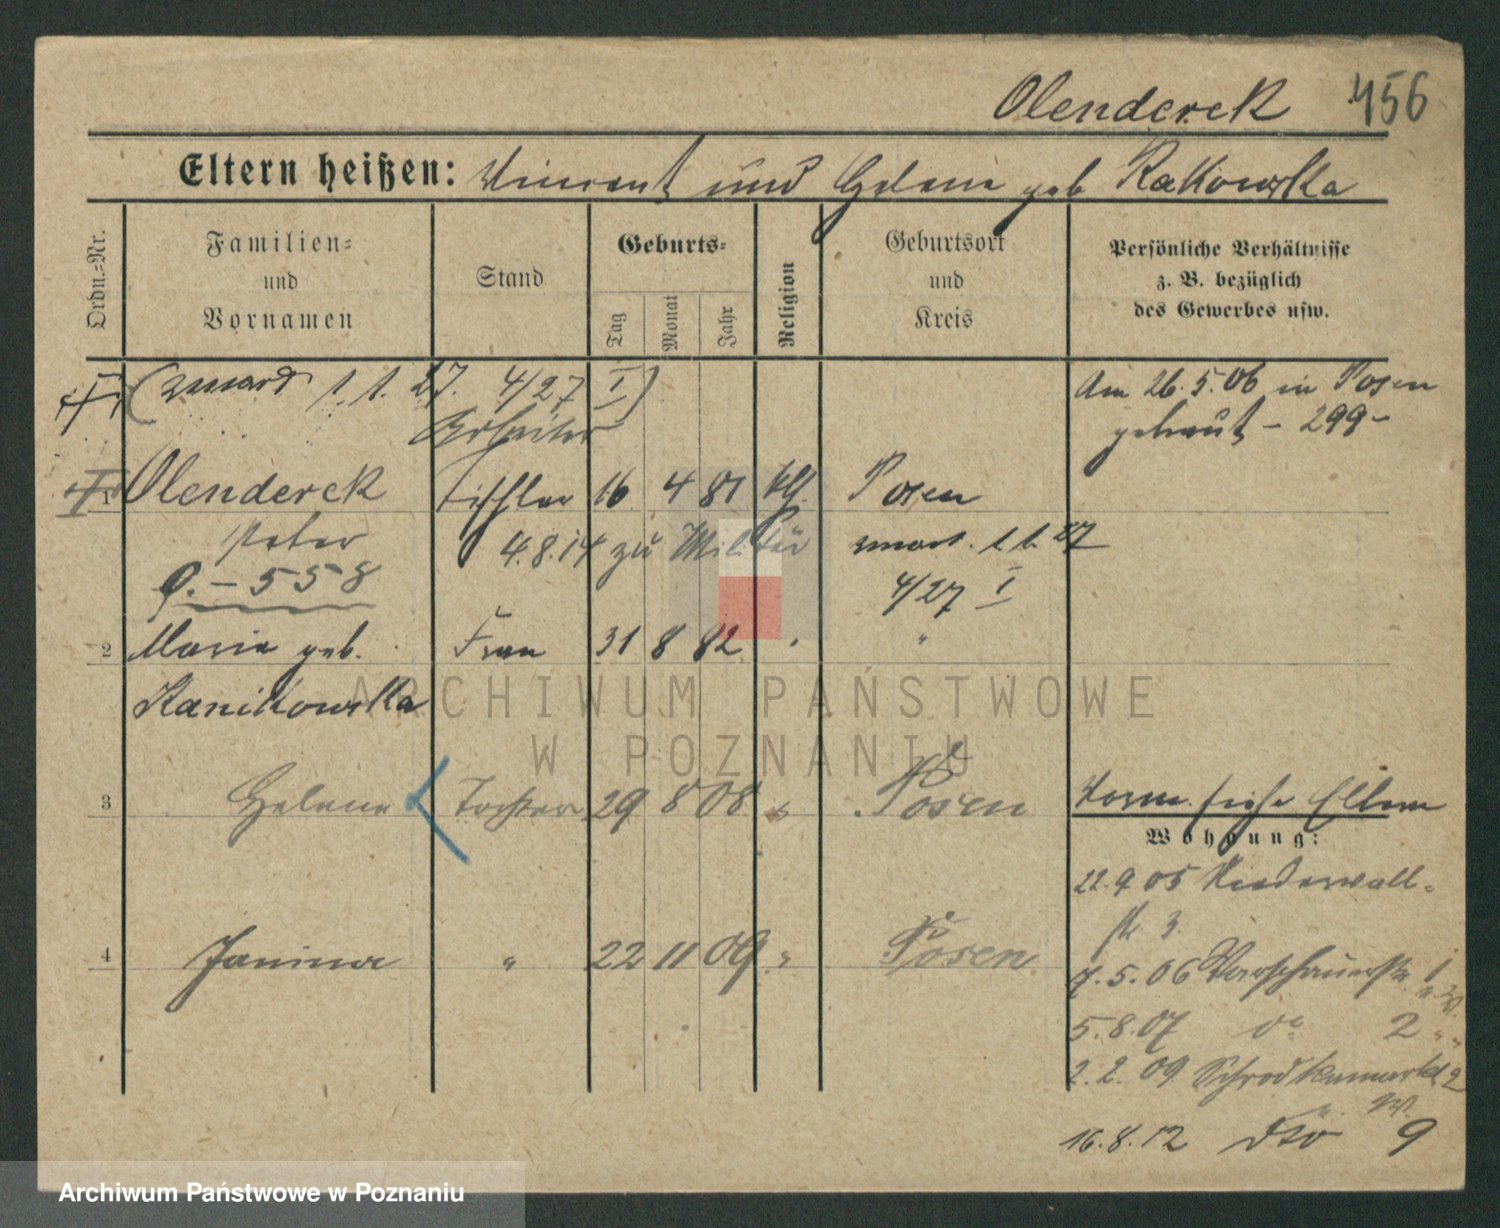 Olenderek 456
Eltern heißen: Vincent und Helene geb Rakowska
Ordn.=Nr.
Familien=
und
Vornamen
Stand
Geburts=
Tag
Monat
Jahr
Religion
Geburtsort
und
Kreis
Persönliche Verhältnisse
z. B. bezüglich
des Gewerbes usw.
(zmarł 1.1.27. 4/27 I)
Am 26.5.06 in Posen
getraut - 299-
Arbeiter
1 Olenderek Tischler 16 4 81 kth. Posen
Peter 4.8.14 zu Militär zmarł. 1.1.27
- 558 4/27 I
2 Maria geb. Frau 31 8 82 " "
Kanikowska
3 Helene Tochter 29 8 08 " Posen
Vorm. siehe Eltern
Wohnung:
22.9 05 Niederwall-
str 3.
4 Janina " 22 11 09 " Posen
7.5.06 Warschauerstr. 1
5.8.07 do 2 " "
2.2.09 Schrodkamarkt 2
16.8.12 dto W. 9
ARCHIWUM PAŃSTWOWE
W POZNANIU
Archiwum Państwowe w Poznaniu